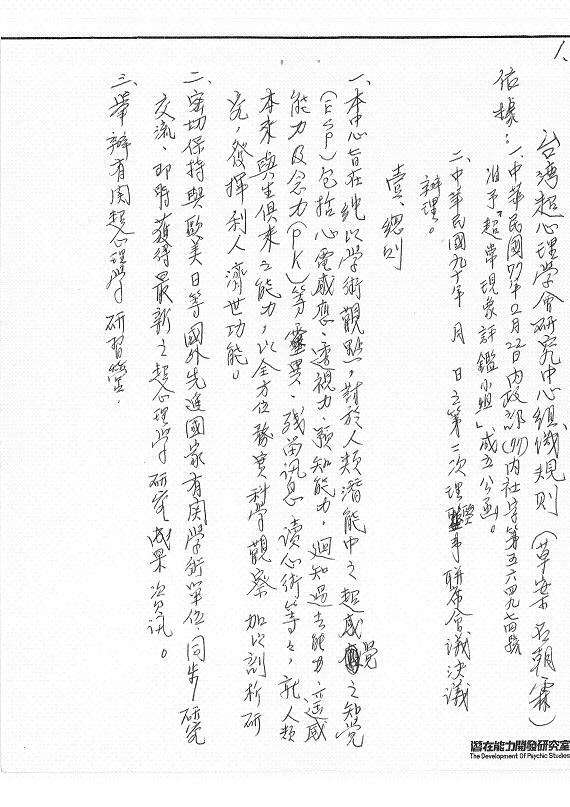 1、
台湾超心理学會研究中心組織規則（草案石朝霖）
依據：一、中華民國77年2月22日內政部(77)內社字第五六四九七四號
准予「超常現象評鑑小組」成立公函。
二、中華民國九十年 月 日之第二次理監事聯席會議決議
辦理。
壹、總則
一、本中心旨在純以学術觀點，對於人類潛能中之超感覺之知覺
（ESP）包括心電感應、透視力、預知能力，廻知過去能力、遥感
能力及念力（PK）等、靈異、残留訊息、讀心術等々，就人類
本來與生俱來之能力，以全方位務實科学觀察 加以剖析研
究，發揮利人濟世功能。
二、密切保持與歐美日等國外先進國家有関学術單位，同步研究
交流、即時獲得最新之超心理学研究成果資訊。
三、舉辦有関超心理学研習營．
潛在能力開發研究室
The Development Of Psychic Studies